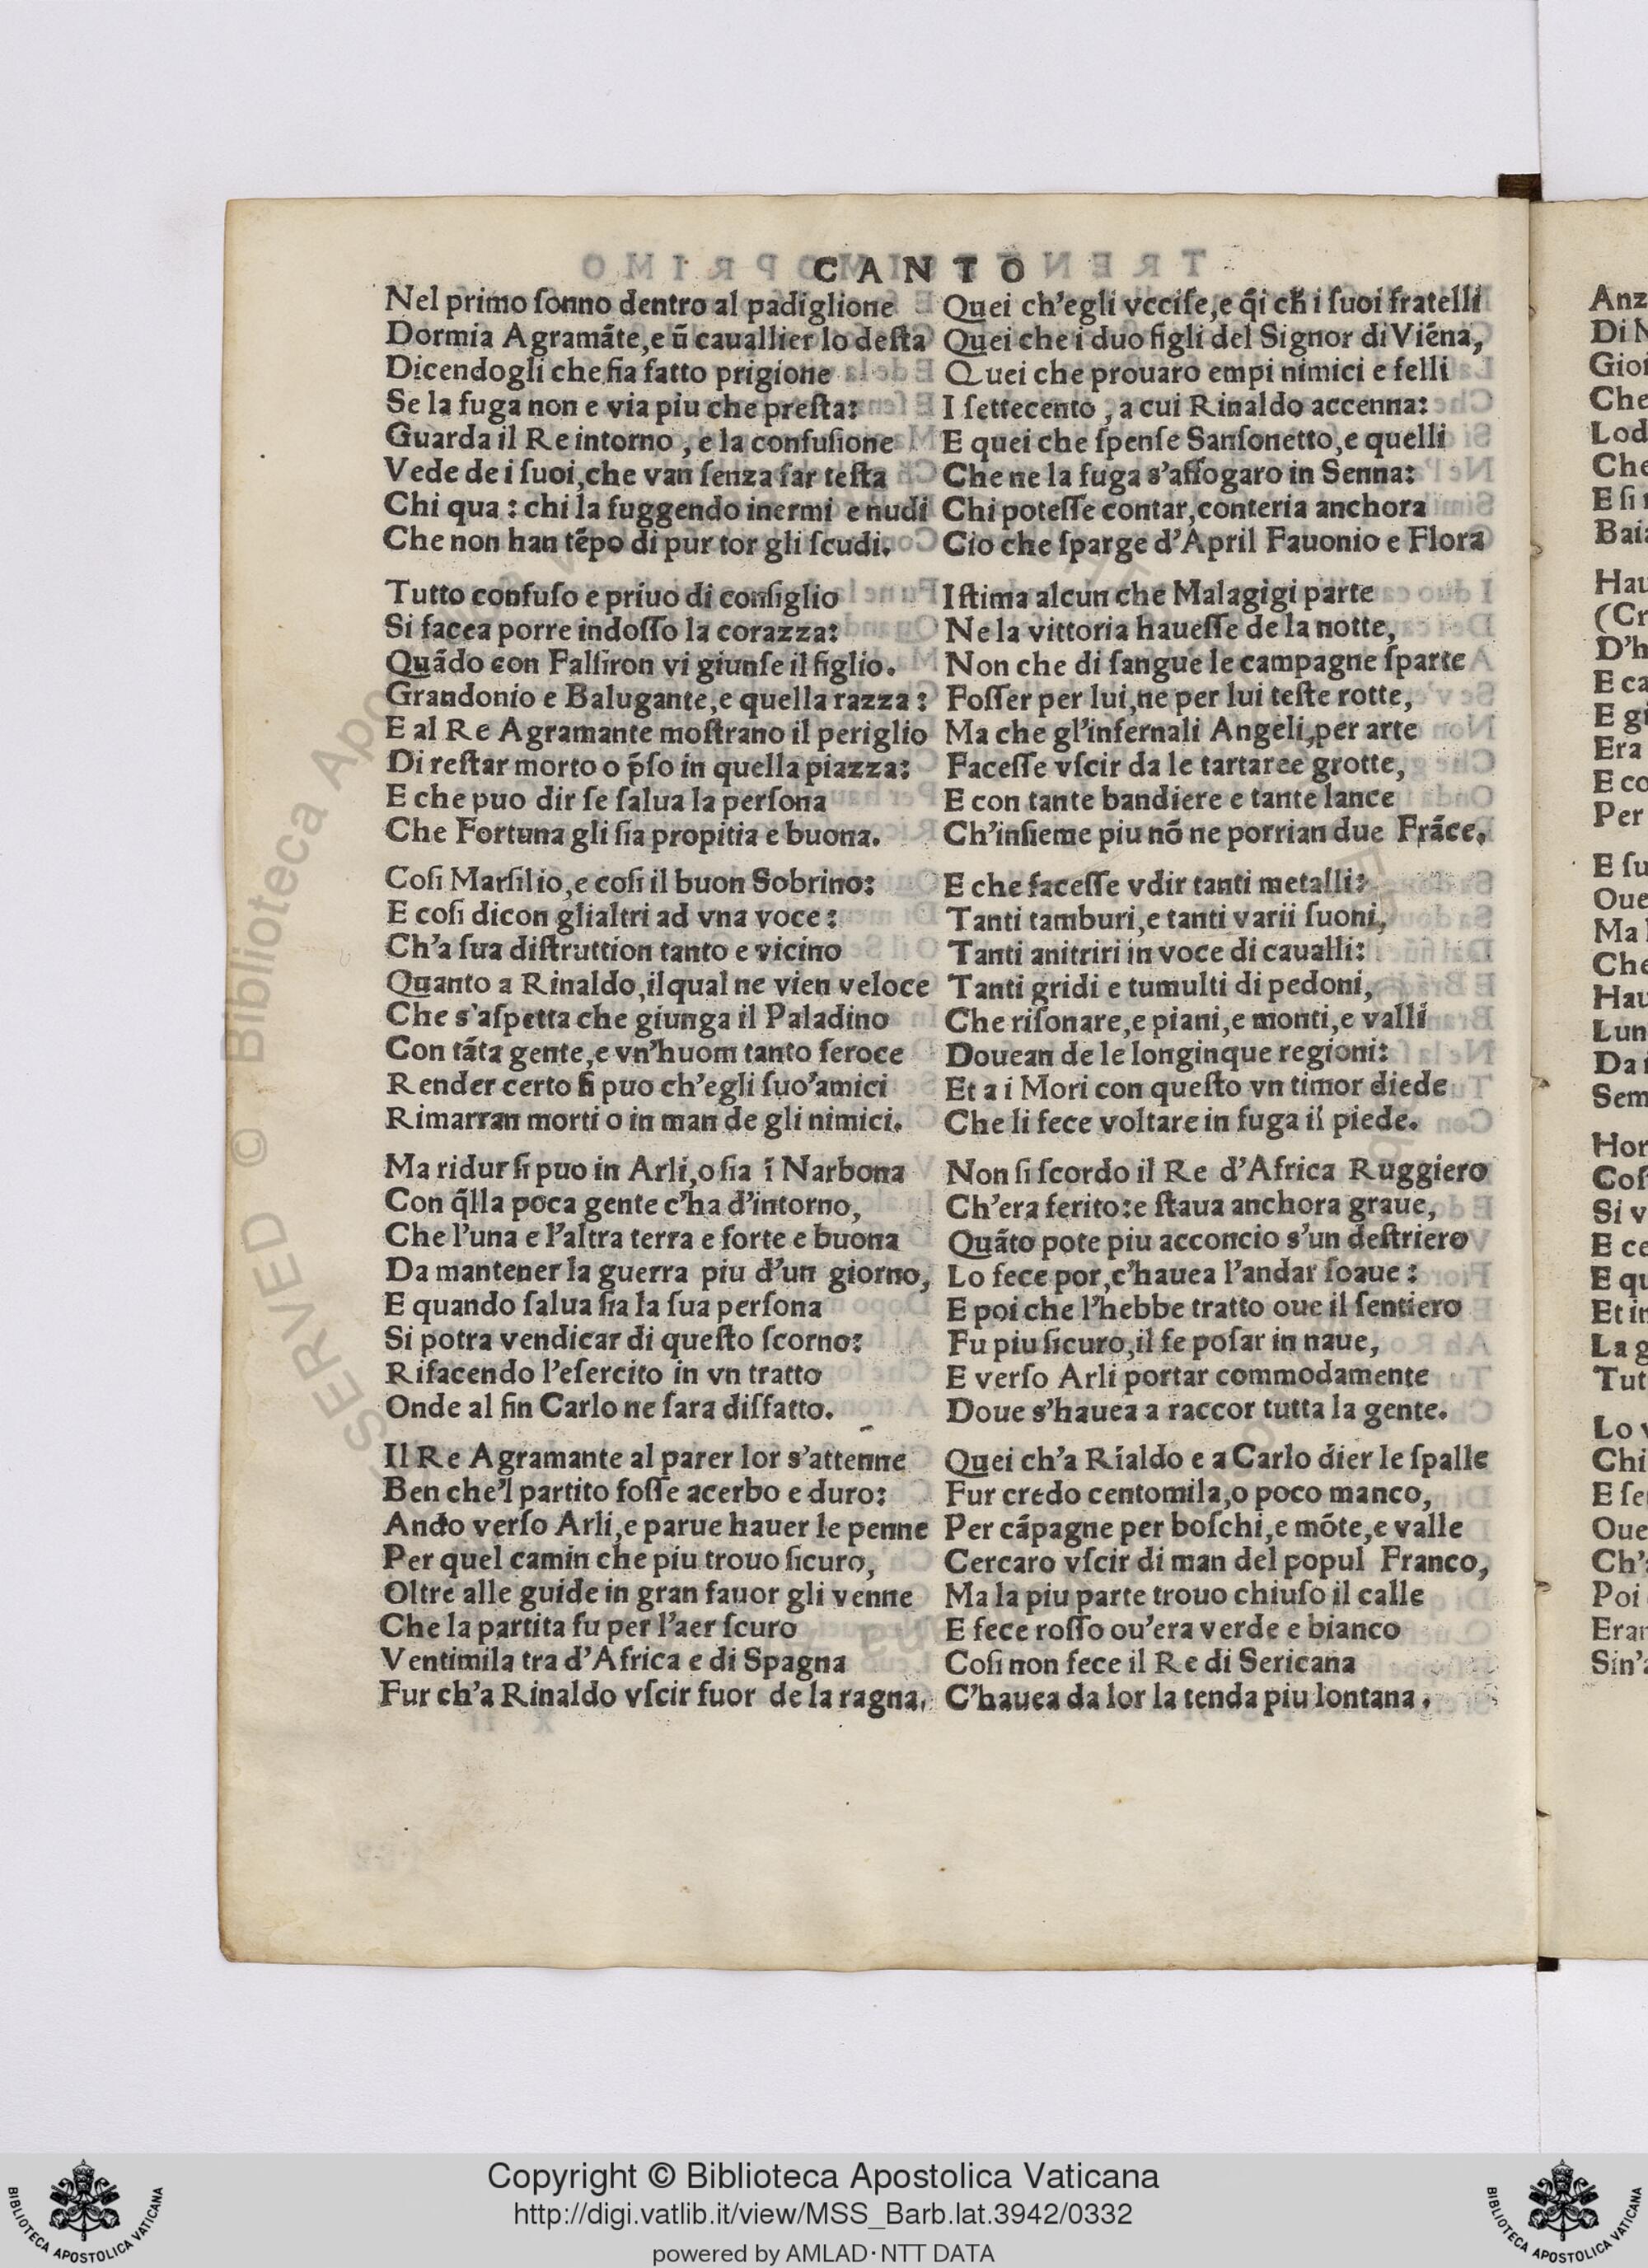 CANTO
Nel primo ſonno dentro al padiglione
Dormia Agramãte,e ũ cauallier lo deſta
Dicendogli che fia fatto prigione
Se la fuga non e via piu che preſta:
Guarda il Re intorno , e la confuſione
Vede de i ſuoi,che van ſenza far teſta
Chi qua : chi la fuggendo inermi e nudi
Che non han tẽpo di pur tor gli ſcudi.
Tutto confuſo e priuo di conſiglio
Si facea porre indoſſo la corazza:
Quãdo con Falſiron vi giunſe il figlio.
Grandonio e Balugante,e quella razza :
E al Re Agramante moſtrano il periglio
Di reſtar morto o p̃ſo in quella piazza:
E che puo dir ſe ſalua la perſona
Che Fortuna gli ſia propitia e buona.
Coſi Marſilio,e coſi il buon Sobrino:
E coſi dicon glialtri ad vna voce :
Ch'a ſua diſtruttion tanto e vicino
Quanto a Rinaldo,ilqual ne vien veloce
Che s'aſpetta che giunga il Paladino
Con tãta gente,e vn'huom tanto feroce
Render certo ſi puo ch'egli ſuo'amici
Rimarran morti o in man de gli nimici.
Ma ridur ſi puo in Arli,o ſia ĩ Narbona
Con q̃lla poca gente c'ha d'intorno,
Che l'una e l'altra terra e forte e buona
Da mantener la guerra piu d'un giorno,
E quando ſalua ſia la ſua perſona
Si potra vendicar di queſto ſcorno:
Rifacendo l'eſercito in vn tratto
Onde al fin Carlo ne ſara disfatto.
Il Re Agramante al parer lor s'attenne
Ben che'l partito foſſe acerbo e duro:
Ando verſo Arli,e parue hauer le penne
Per quel camin che piu trouo ſicuro,
Oltre alle guide in gran fauor gli venne
Che la partita fu per l'aer ſcuro
Ventimila tra d'Africa e di Spagna
Fur ch'a Rinaldo vſcir fuor de la ragna.
Quei ch'egli vcciſe,e q̃i ch̃ i ſuoi fratelli
Quei che i duo figli del Signor di Viẽna,
Quei che prouaro empi nimici e felli
I ſettecento , a cui Rinaldo accenna:
E quei che ſpenſe Sanſonetto,e quelli
Che ne la fuga s'affogaro in Senna:
Chi poteſſe contar,conteria anchora
Cio che ſparge d'April Fauonio e Flora
Iſtima alcun che Malagigi parte
Ne la vittoria haueſſe de la notte,
Non che di ſangue le campagne ſparte
Foſſer per lui,ne per lui teſte rotte,
Ma che gl'infernali Angeli,per arte
Faceſſe vſcir da le tartaree grotte,
E con tante bandiere e tante lance
Ch'inſieme piu nõ ne porrian due Frãce.
E che faceſſe vdir tanti metalli:
Tanti tamburi,e tanti varii ſuoni,
Tanti anitriri in voce di caualli:
Tanti gridi e tumulti di pedoni,
Che riſonare,e piani,e monti,e valli
Douean de le longinque regioni:
Et a i Mori con queſto vn timor diede
Che li fece voltare in fuga il piede.
Non ſi ſcordo il Re d'Africa Ruggiero
Ch'era ferito:e ſtaua anchora graue,
Quãto pote piu acconcio s'un deſtriero
Lo fece por,c'hauea l'andar ſoaue :
E poi che l'hebbe tratto oue il ſentiero
Fu piu ſicuro,il fe poſar in naue,
E verſo Arli portar commodamente
Doue s'hauea a raccor tutta la gente.
Quei ch'a Rĩaldo e a Carlo dier le ſpalle
Fur credo centomila,o poco manco,
Per cãpagne per boſchi,e mõte,e valle
Cercaro vſcir di man del popul Franco,
Ma la piu parte trouo chiuſo il calle
E fece roſſo ou'era verde e bianco
Coſi non fece il Re di Sericana
C'hauea da lor la tenda piu lontana.
Anz
Di N
Gioi
Che
Lod
Che
E ſi
Baia
Hau
(Cr
D'h
E ca
E gi
Era
E co
Per
E ſu
Oue
Ma
Che
Hau
Lun
Da
Sem
Hor
Coſ
Si v
E ce
E qu
Et in
La g
Tut
Lo v
Chi
E ſe
Oue
Ch'
Poi
Eran
Sin'
© Biblioteca Apo
SERVED
Copyright © Biblioteca Apostolica Vaticana
http://digi.vatlib.it/view/MSS_Barb.lat.3942/0332
powered by AMLAD·NTT DATA
BIBLIOTECA APOSTOLICA VATICANA
BIBLIOTECA APOSTOLICA VATICANA